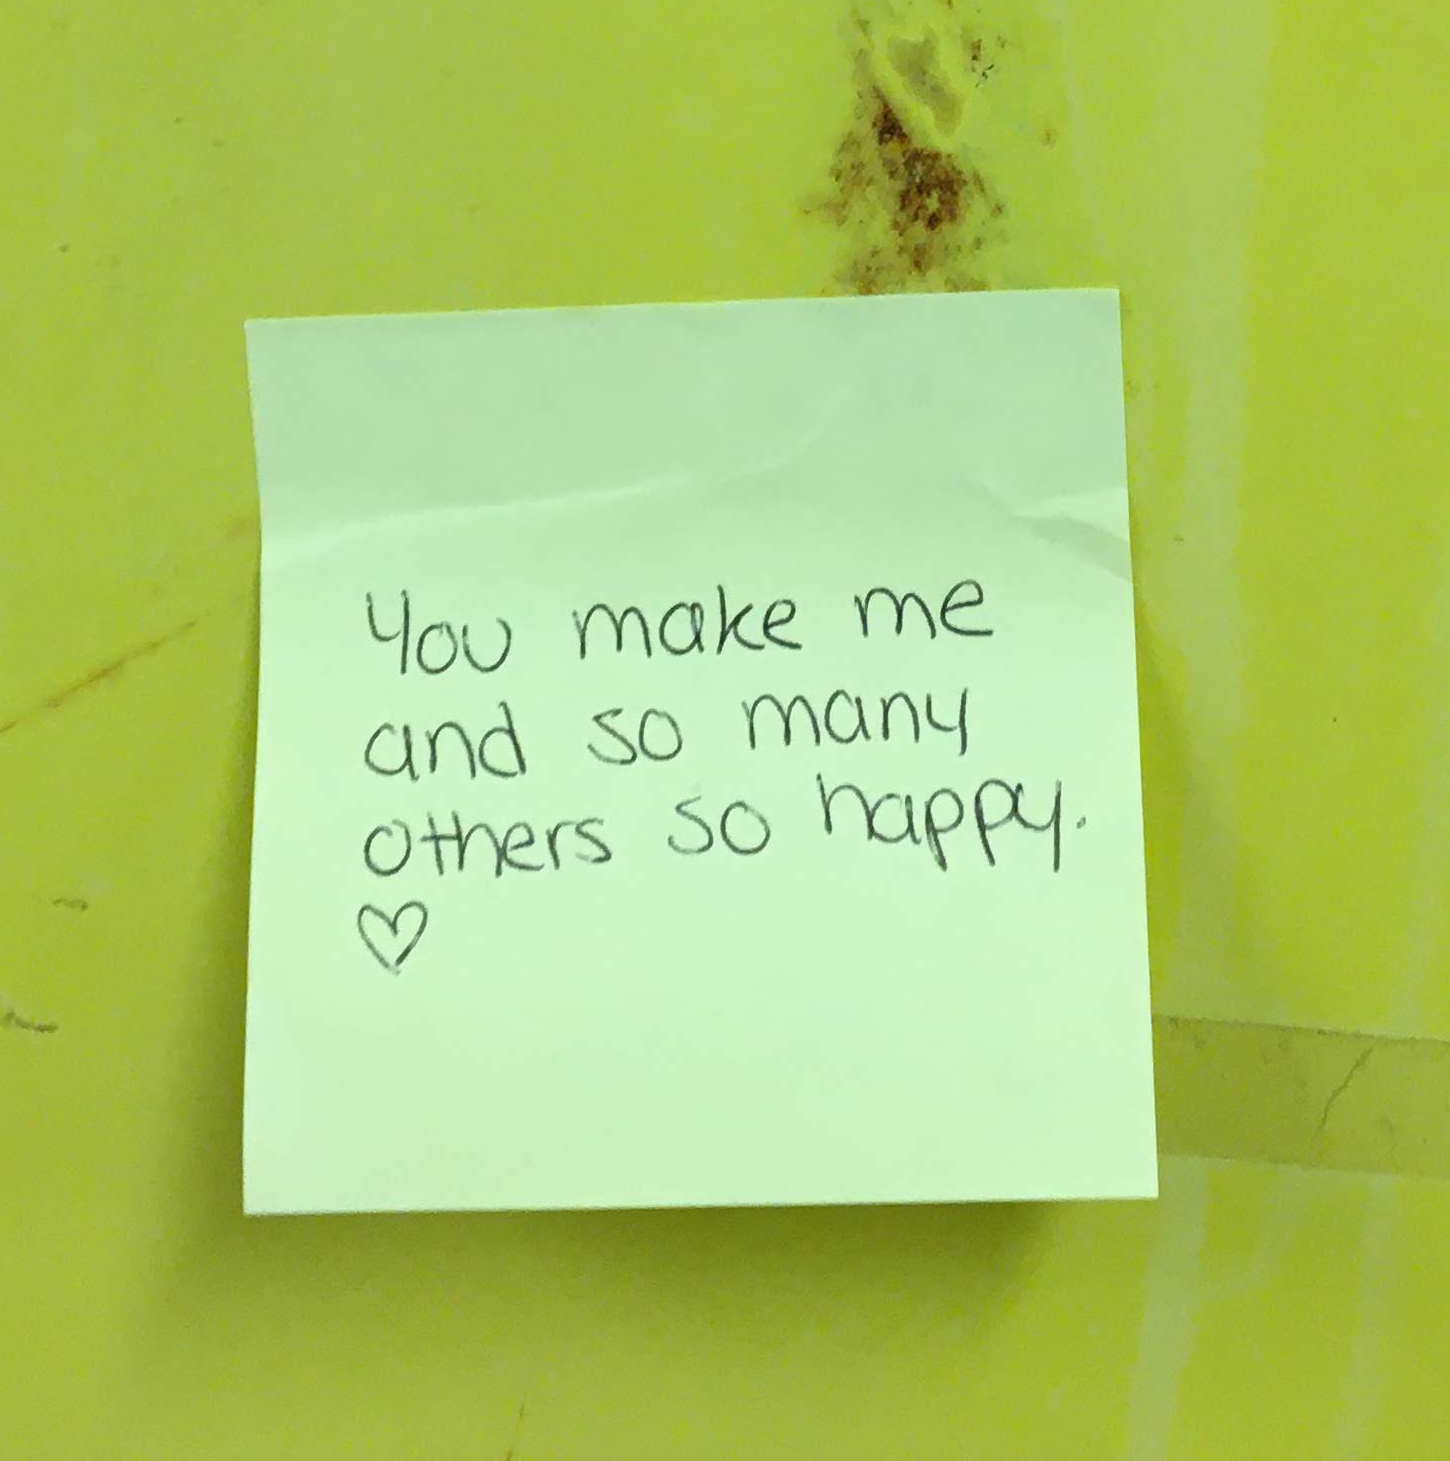 You make me
and so many
others so happy.
♡